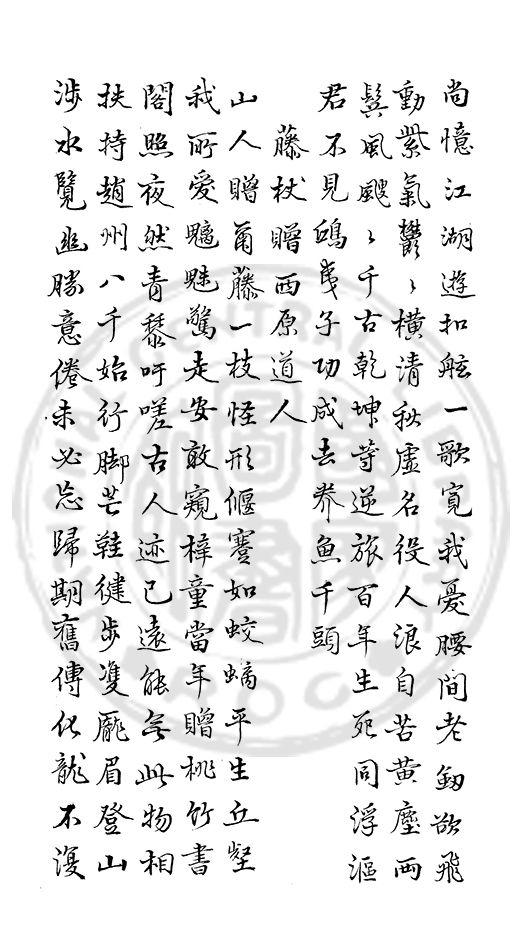 尚憶江湖遊扣舷一歌寬我憂腰間老劔欲飛
動紫氣鬱〻橫清秋虛名役人浪自苦黃塵兩
鬂風颼〻千古乾坤等逆旅百年生死同浮漚
君不見鴟夷子功成去養魚千頭
藤杖贈西原道人
山人贈爾藤一枝怪形偃蹇如蛟螭平生丘壑
我所愛魑魅驚走安敢窺梓童當年贈桃竹書
閣照夜然青藜吁嗟古人迹已遠能無此物相
扶持趙州八千始行脚芒鞋健步雙龐眉登山
涉水覽幽勝意倦未必忘歸期舊傳化龍不復